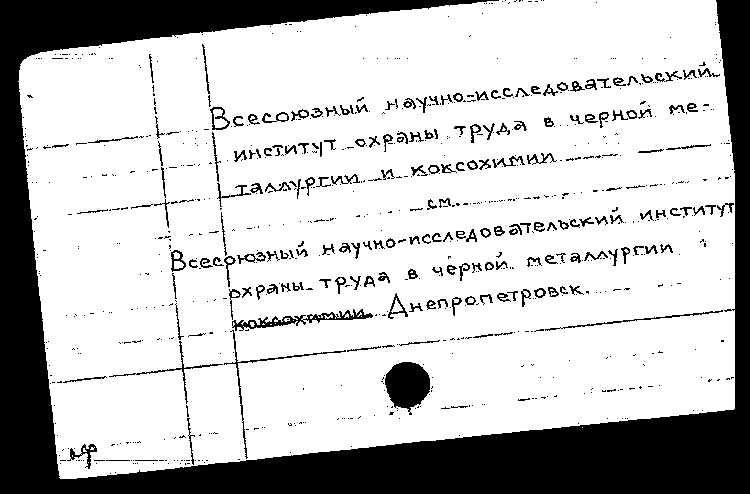 Всесоюзный научно-исследовательский
институт охраны труда в черной ме-
таллургии и коксохимии
см.
Всесоюзный научно-исследовательский институт
охраны труда в черной металлургии
коксохимии Днепропетровск.